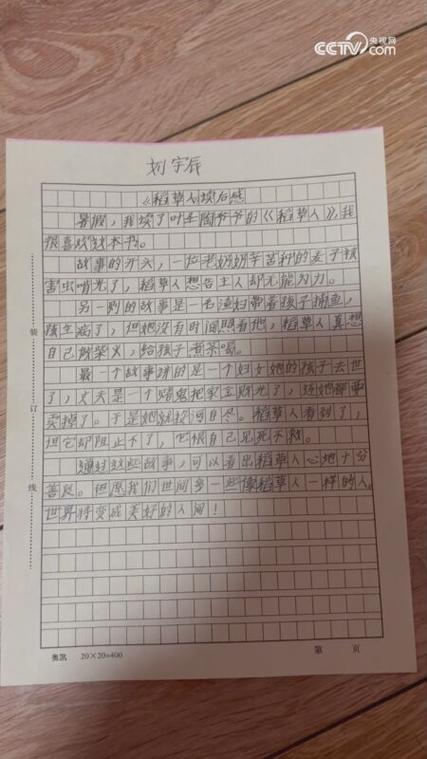 CCTV.com 央视网
刘宇辰
《稻草人》读后感
暑假，我读了叶圣陶爷爷的《稻草人》，我
很喜欢这本书。
故事的开头，一位老奶奶辛苦种的麦子被
害虫啃光了，稻草人想告主人却无能为力。
另一则的故事是一名渔妇带着孩子捕鱼，
孩生病了，但她没有时间照看他，稻草人真想
自己做柴火，给孩子煮茶喝。
最一个故事讲的是一个妇女她的孩子去世
了，丈夫是一个赌鬼把家宝财光了，还她
卖掉了。于是她就投河自尽。稻草人看到了，
但它却阻止不了，它恨自己见死不救。
通过这些故事，可以看出稻草人心地十分
善良。但愿我们世间多一些像稻草人一样的人。
世界将变成美好的人间！
装
订
线
奥凯 20×20=400 第 页